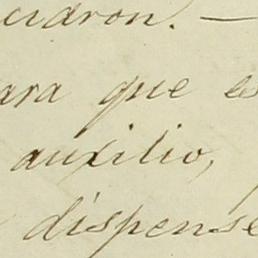 para que es
auxilio,
dispense